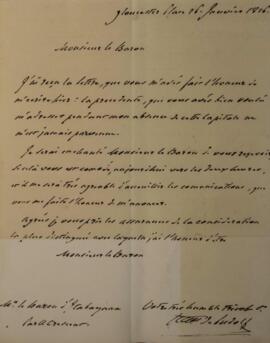 Gloucester Place 26. Janvier 1826.
Monsieur le Baron
J'ai reçu la lettre, que vous m'avez fait l'honneur de
m'écrire hier: la precedente, que vous aviez bien voulu
m'adresser pendant mon absence de cette Capitale ne
m'est jamais parvenue.
Je serai enchanté Monsieur le Baron de vous recevoir
si cela vous convient, aujourd'hui vers les deux heures,
et il me sera très agréable d'accueillir les comunications, que
vous me faites l'honneur de m'annoncer.
Agréez je vous prie les assurances de la considération
la plus distinguée avec laquelle j'ai l'honneur d'être
Monsieur le Baron
Mr. le Baron d'Itabayana
Votre très humble
de Ludolf